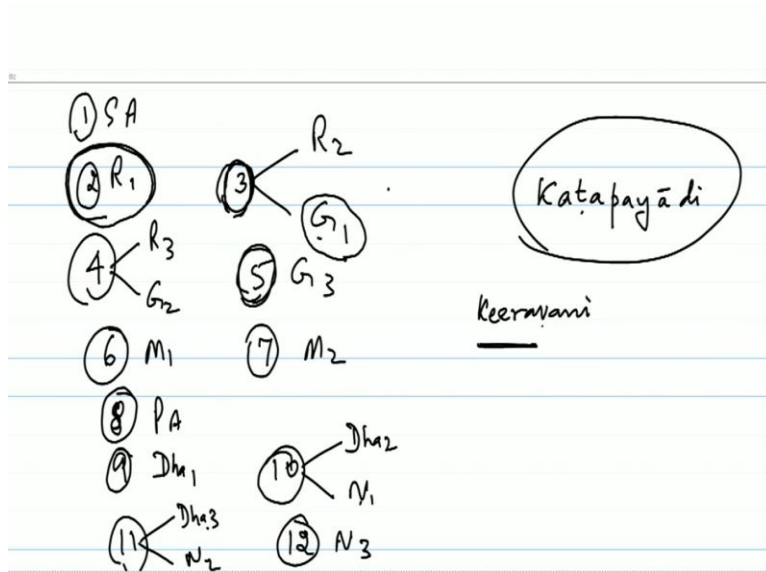 1 SA
2 R1
3 R2 G1
4 R3 G2
5 G3
6 M1
7 M2
8 PA
9 Dha1
10 Dha2 N1
11 Dha3 N2
12 N3
Kaṭapayādi
Keeravani